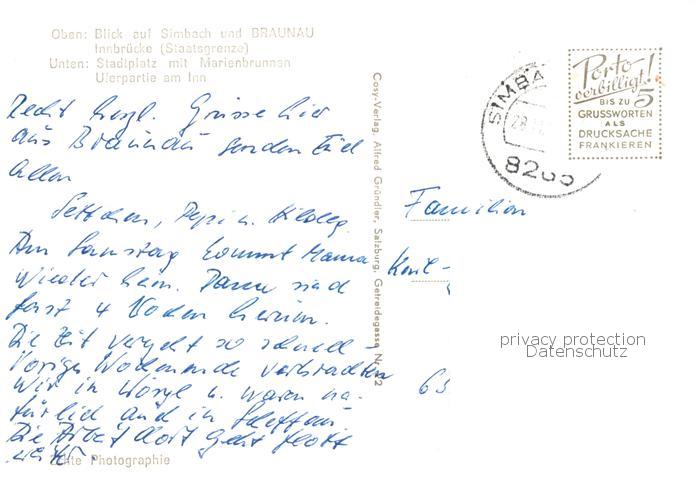 Oben: Blick auf Simbach und BRAUNAU
Innbrücke (Staatsgrenze)
Unten: Stadtplatz mit Marienbrunnen
Uferpartie am Inn
Recht herzl. Grüsse hier
aus Braunau senden Euch
allen
Settchen, Pepi u. Hildeg.
Am Samstag kommt Mama
wieder heim. Dann sind
fast 4 Wochen herum.
Die Zeit vergeht so schnell
Voriges Wochenende verbrachten
wir in Wörgl u. waren na-
türlich auch in
Die Arbeit dort geht flott
weiter
Echte Photographie
Cosy-Verlag, Alfred Gründler, Salzburg, Getreidegasse Nr. 22
SIMBA
8265
Porto
verbilligt!
BIS ZU 5
GRUSSWORTEN
ALS
DRUCKSACHE
FRANKIEREN
Familien
Karl-
63
privacy protection
Datenschutz